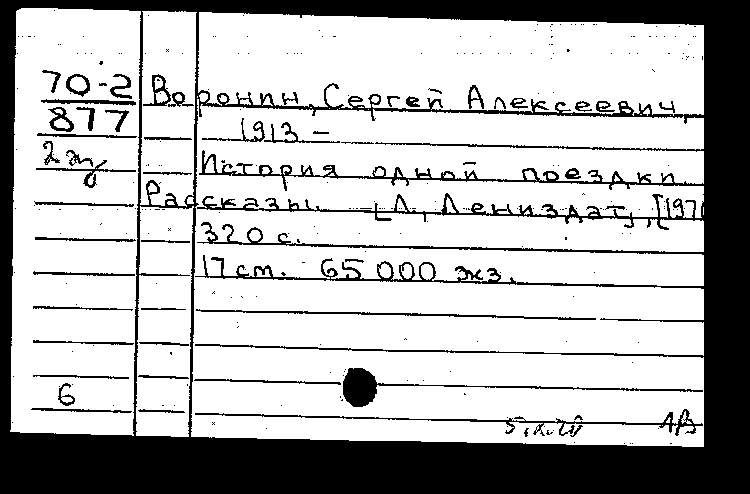 70-2
877
2 экз
Воронин, Сергей Алексеевич,
1913 –
История одной поездки
Рассказы. [Л., Лениздат], [1970
320 с.
17 см. 65 000 экз.
6
АВ